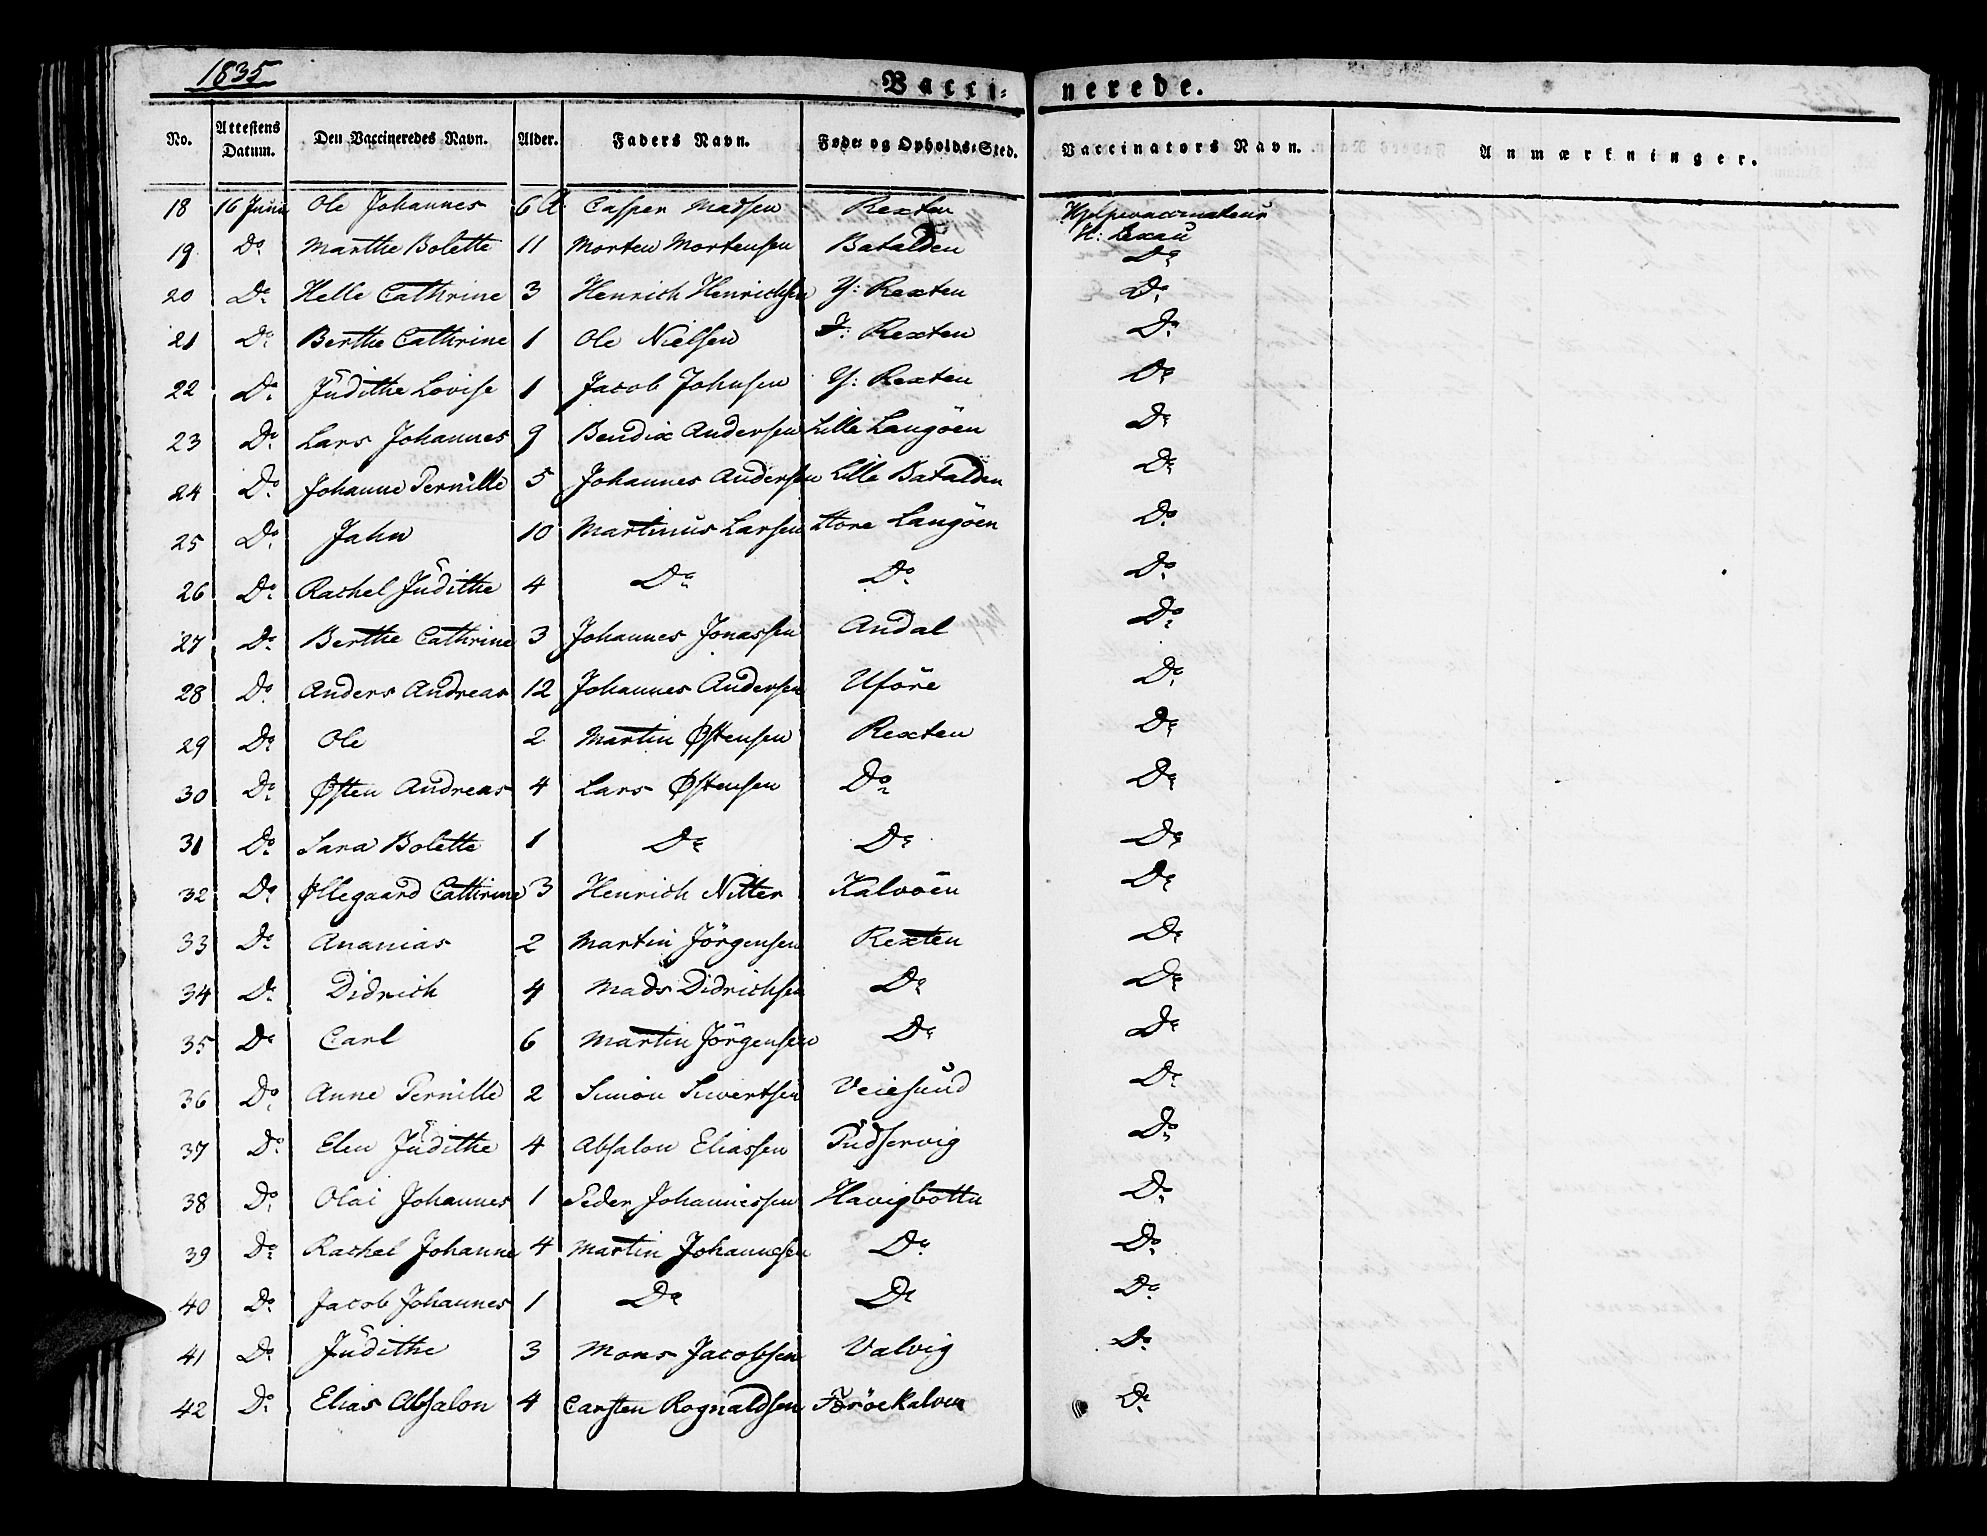 1835
Vacci- nerede.
No. Attestens Datum. Den Vaccineredes Navn. Alder. Faders Navn. Føde- og Opholds-Sted. Vaccinators Navn. Anmærkninger.
18 16 Juni Ole Johannes 6 A Casper Madsen Rexten Hjelpevaccinateur
H:
19 Do Marthe Bolette 11 Morten Mortensen Batalden Do
20 Do Helle Cathrine 3 Henrich Henrichsen Y: Rexten Do
21 Do Berthe Cathrine 1 Ole Nielsen I: Rexten Do
22 Do Jŭdithe Lovise 1 Jacob Johnsen Y: Rexten Do
23 Do Lars Johannes 9 Bendix Andersen Lille Langöen Do
24 Do Johanne Pernille 5 Johannes Andersen Lille Batalden Do
25 Do Jahn 10 Martinus Larsen Store Langöen Do
26 Do Rachel Jŭdithe 4 Do Do Do
27 Do Berthe Cathrine 3 Johannes Jonassen Andal Do
28 Do Anders Andreas 12 Johannes Andersen Uföre Do
29 Do Ole 2 Martin Østensen Rexten Do
30 Do Østen Andreas 4 Lars Østensen Do Do
31 Do Sara Bolette 1 Do Do Do
32 Do Øllegaard Cathrine 3 Henrich Nitter Kalvöen Do
33 Do Ananias 2 Martin Jörgensen Rexten Do
34 Do Didrich 4 Mads Didrichsen Do Do
35 Do Carl 6 Martin Jörgensen Do Do
36 Do Anne Pernille 2 Simon Siwertsen Veiesund Do
37 Do Elen Jŭdithe 4 Absalon Eliassen Do
38 Do Olai Johannes 1 Peder Johannessen Havigbottn Do
39 Do Rachel Johanne 4 Martin Johannesen Do Do
40 Do Jacob Johannes 1 Do Do Do
41 Do Jŭdithe 3 Mons Jacobsen Valvig Do
42 Do Elias Absalon 4 Carsten Rognaldsen Do